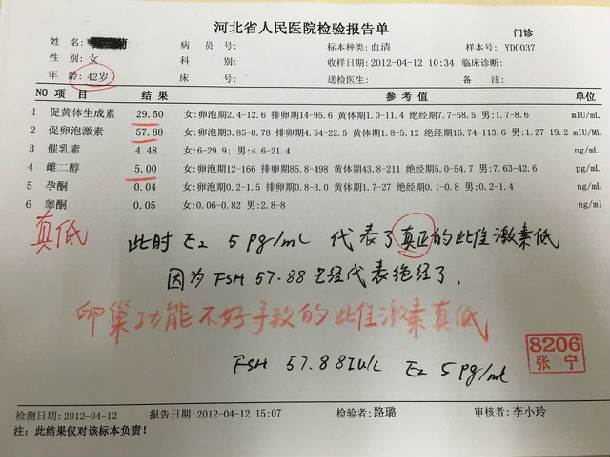 河北省人民医院检验报告单
门诊
姓 名: 菊 病 员 号: 标本种类: 血清 样本号: YDC037
性 别: 女 科 别: 收样日期: 2012-04-12 10:34 临床诊断:
年 龄: 42岁 床 号: 送检医生: 备 注:
NO 项 目 结 果 参 考 值 单位
1 促黄体生成素 29.50 女:卵泡期2.4-12.6 排卵期14-95.6 黄体期1.0-11.4 绝经期7.7-58.5 男:1.7-8.6 mIU/mL
2 促卵泡激素 57.88 女:卵泡期3.85-8.78 排卵期4.54-22.5 黄体期1.8-5.12 绝经期16.74-113.6 男:1.27 19.2 mIU/mL
3 催乳素 4.48 女:6-29.9; 男:4.6-21.4 ng/mL
4 雌二醇 5.00 女:卵泡期12-166 排卵期85.8-498 黄体期43.8-211 绝经期5.0-54.7 男:7.63-42.6 pg/mL
5 孕酮 0.04 女:卵泡期0.2-1.5 排卵期0.8-3.0 黄体期1.7-27 绝经期0.1-0.8 男:0.2-1.4 ng/mL
6 睾酮 0.05 女:0.06-0.82 男:2.8-8 ng/ml
真低
此时 E2 5pg/mL 代表了真正的雌激素低
因为FSH 57.88已经代表绝经了.
卵巢功能不好导致的雌激素真低
8206
张宁
FSH 57.88IU/L E2 5pg/ml
检测日期: 2012-04-12 报告日期: 2012-04-12 15:07 检验者: 路璐 审核者: 李小玲
注: 此结果仅对该标本负责!